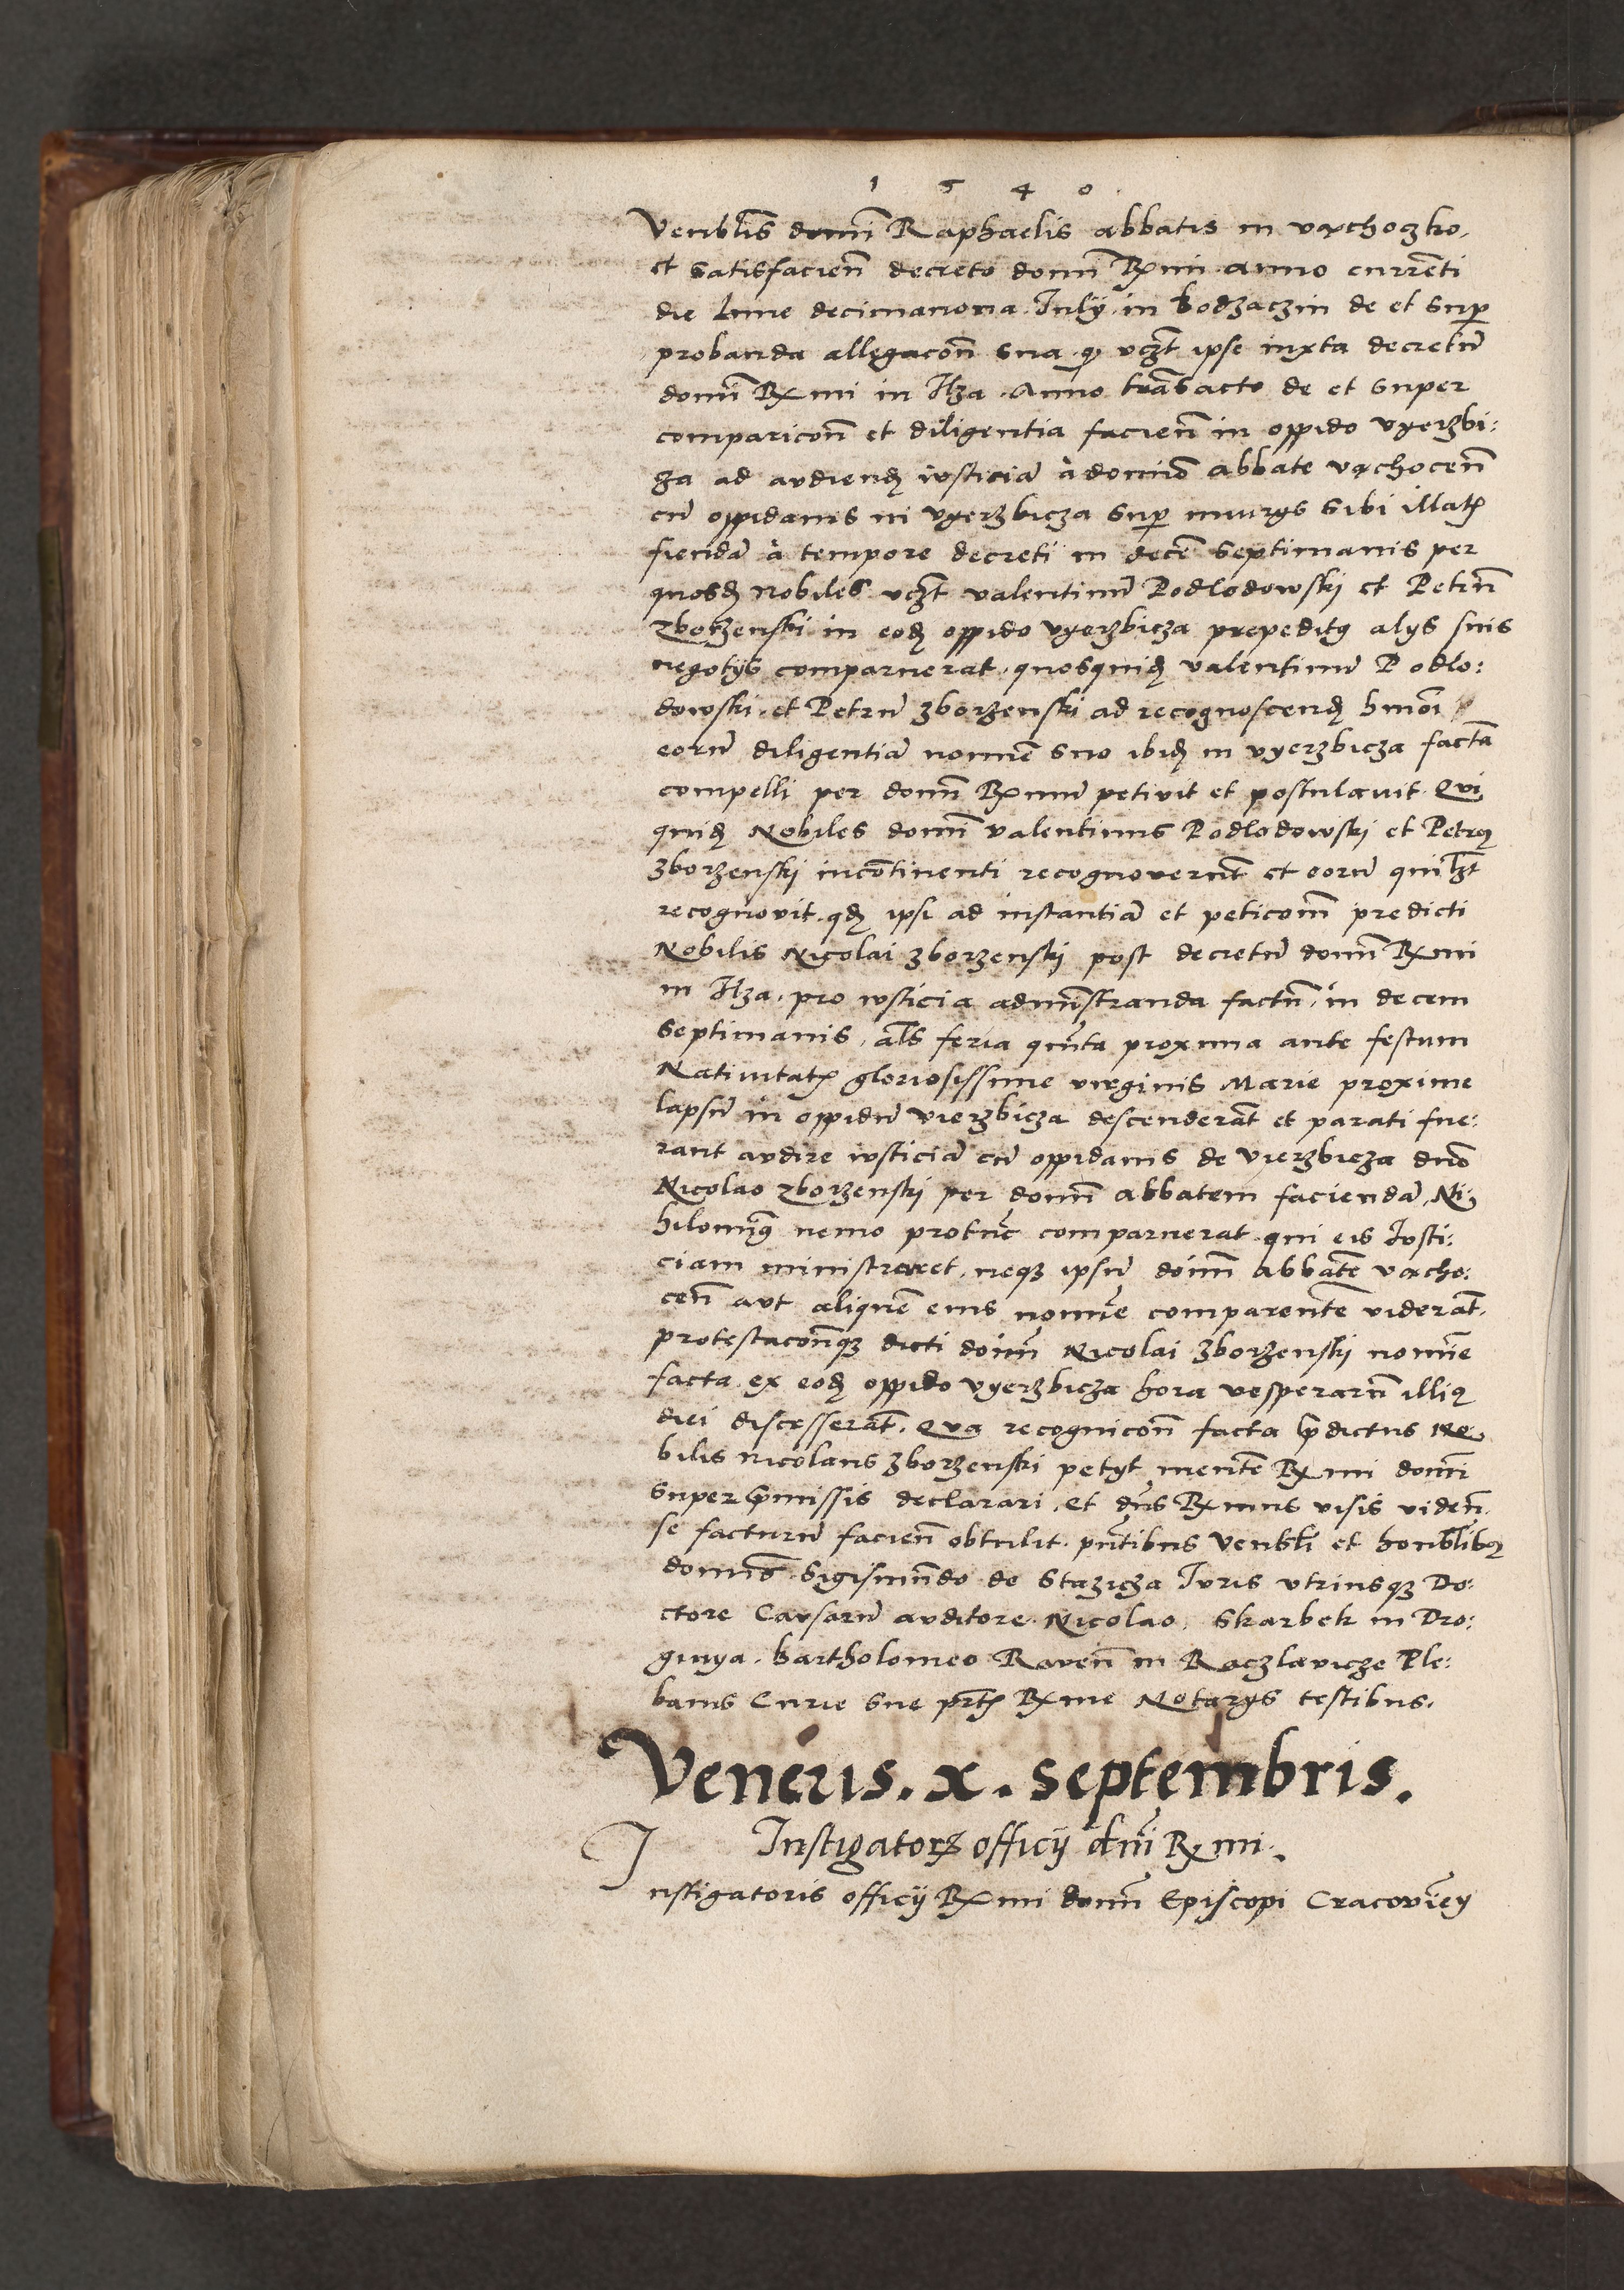 1 5 4 0
Venblis domi Raphaelis abbatis in vachoczko.
et satisfacien decreto domi Rxmi anno currenti
die lune decimanona Iulÿ in bodzaczin de et sup
probanda allegacon sua q vczt ipse iuxta decretu
domi Rxmi in Ilza Anno trasacto de et super
comparicon et diligentia facien in oppido vyerzbi:
cza ad audiend iusticia à domino abbate vachocen
cu oppidanis in vyerzbicza sup iniurys sibi illatis
fienda à tempore decreti in dece septimanis per
quosd Nobiles vczt valentinu Podlodowski et Petru
zborzenski in eod oppido vyerzbicza prepeditus alys suis
negotÿs comparuerat. quosquid valentinu Podlo:
dowski et Petru zborzenski ad recognoscend hmoi
eoru diligentia nomie suo ibid in vyerzbicza facta
compelli per domi Rxmu petivit et postulavit. Qui
quid Nobiles domi valentinus Podlodowski et Petrus
zborzenski incontinenti recognoverut et eoru quilzt
recognovit. qd ipsi ad instantia et peticom predicti
Nobilis Nicolai zborzenski post decretu domi Rxmi
in Ilza, pro iusticia administranda factu, in decem
septimanis, als feria quinta proxima ante festum
Nativitatis gloriosissime virginis Marie proxime
lapsu in oppidu vierzbicza descenderat et parati fue:
rant audire iusticia cu oppidanis de vierzbicza dno
Nicolao zborzenski per domi abbatem facienda, Ni:
hilominus nemo protuc comparuerat qui eis Iusti:
ciam ministraret, neque ipsu doim abbate vacho:
cen aut aliquem eius nomine comparente viderat.
protestaconque dicti doim Nicolai zborzenski nomie
facta ex eod oppido vyerzbicza hora vesperaru illius
diei discesserat. Qua recognicon facta pdictus No
bilis nicolaus zborzenski petyt mente Rxmi domi
super pmissis declarari. et dns Rxmus visis viden.
se facturu facien obtulit. pntibus Venbli et honblibus
domis Sigismundo de Stazicza Iuris vtriusque Do:
ctore Causaru auditore Nicolao, Skarbek in Dro:
ginya. bartholomeo Raven in Raczlavicze Ple:
banis Curie sue prtis Rxme Notarys testibus.
Veneris. x. septembris.
Instigatoris officÿ dni Rxmi.
Instigatoris officÿ Rxmi domi Episcopi Cracovien